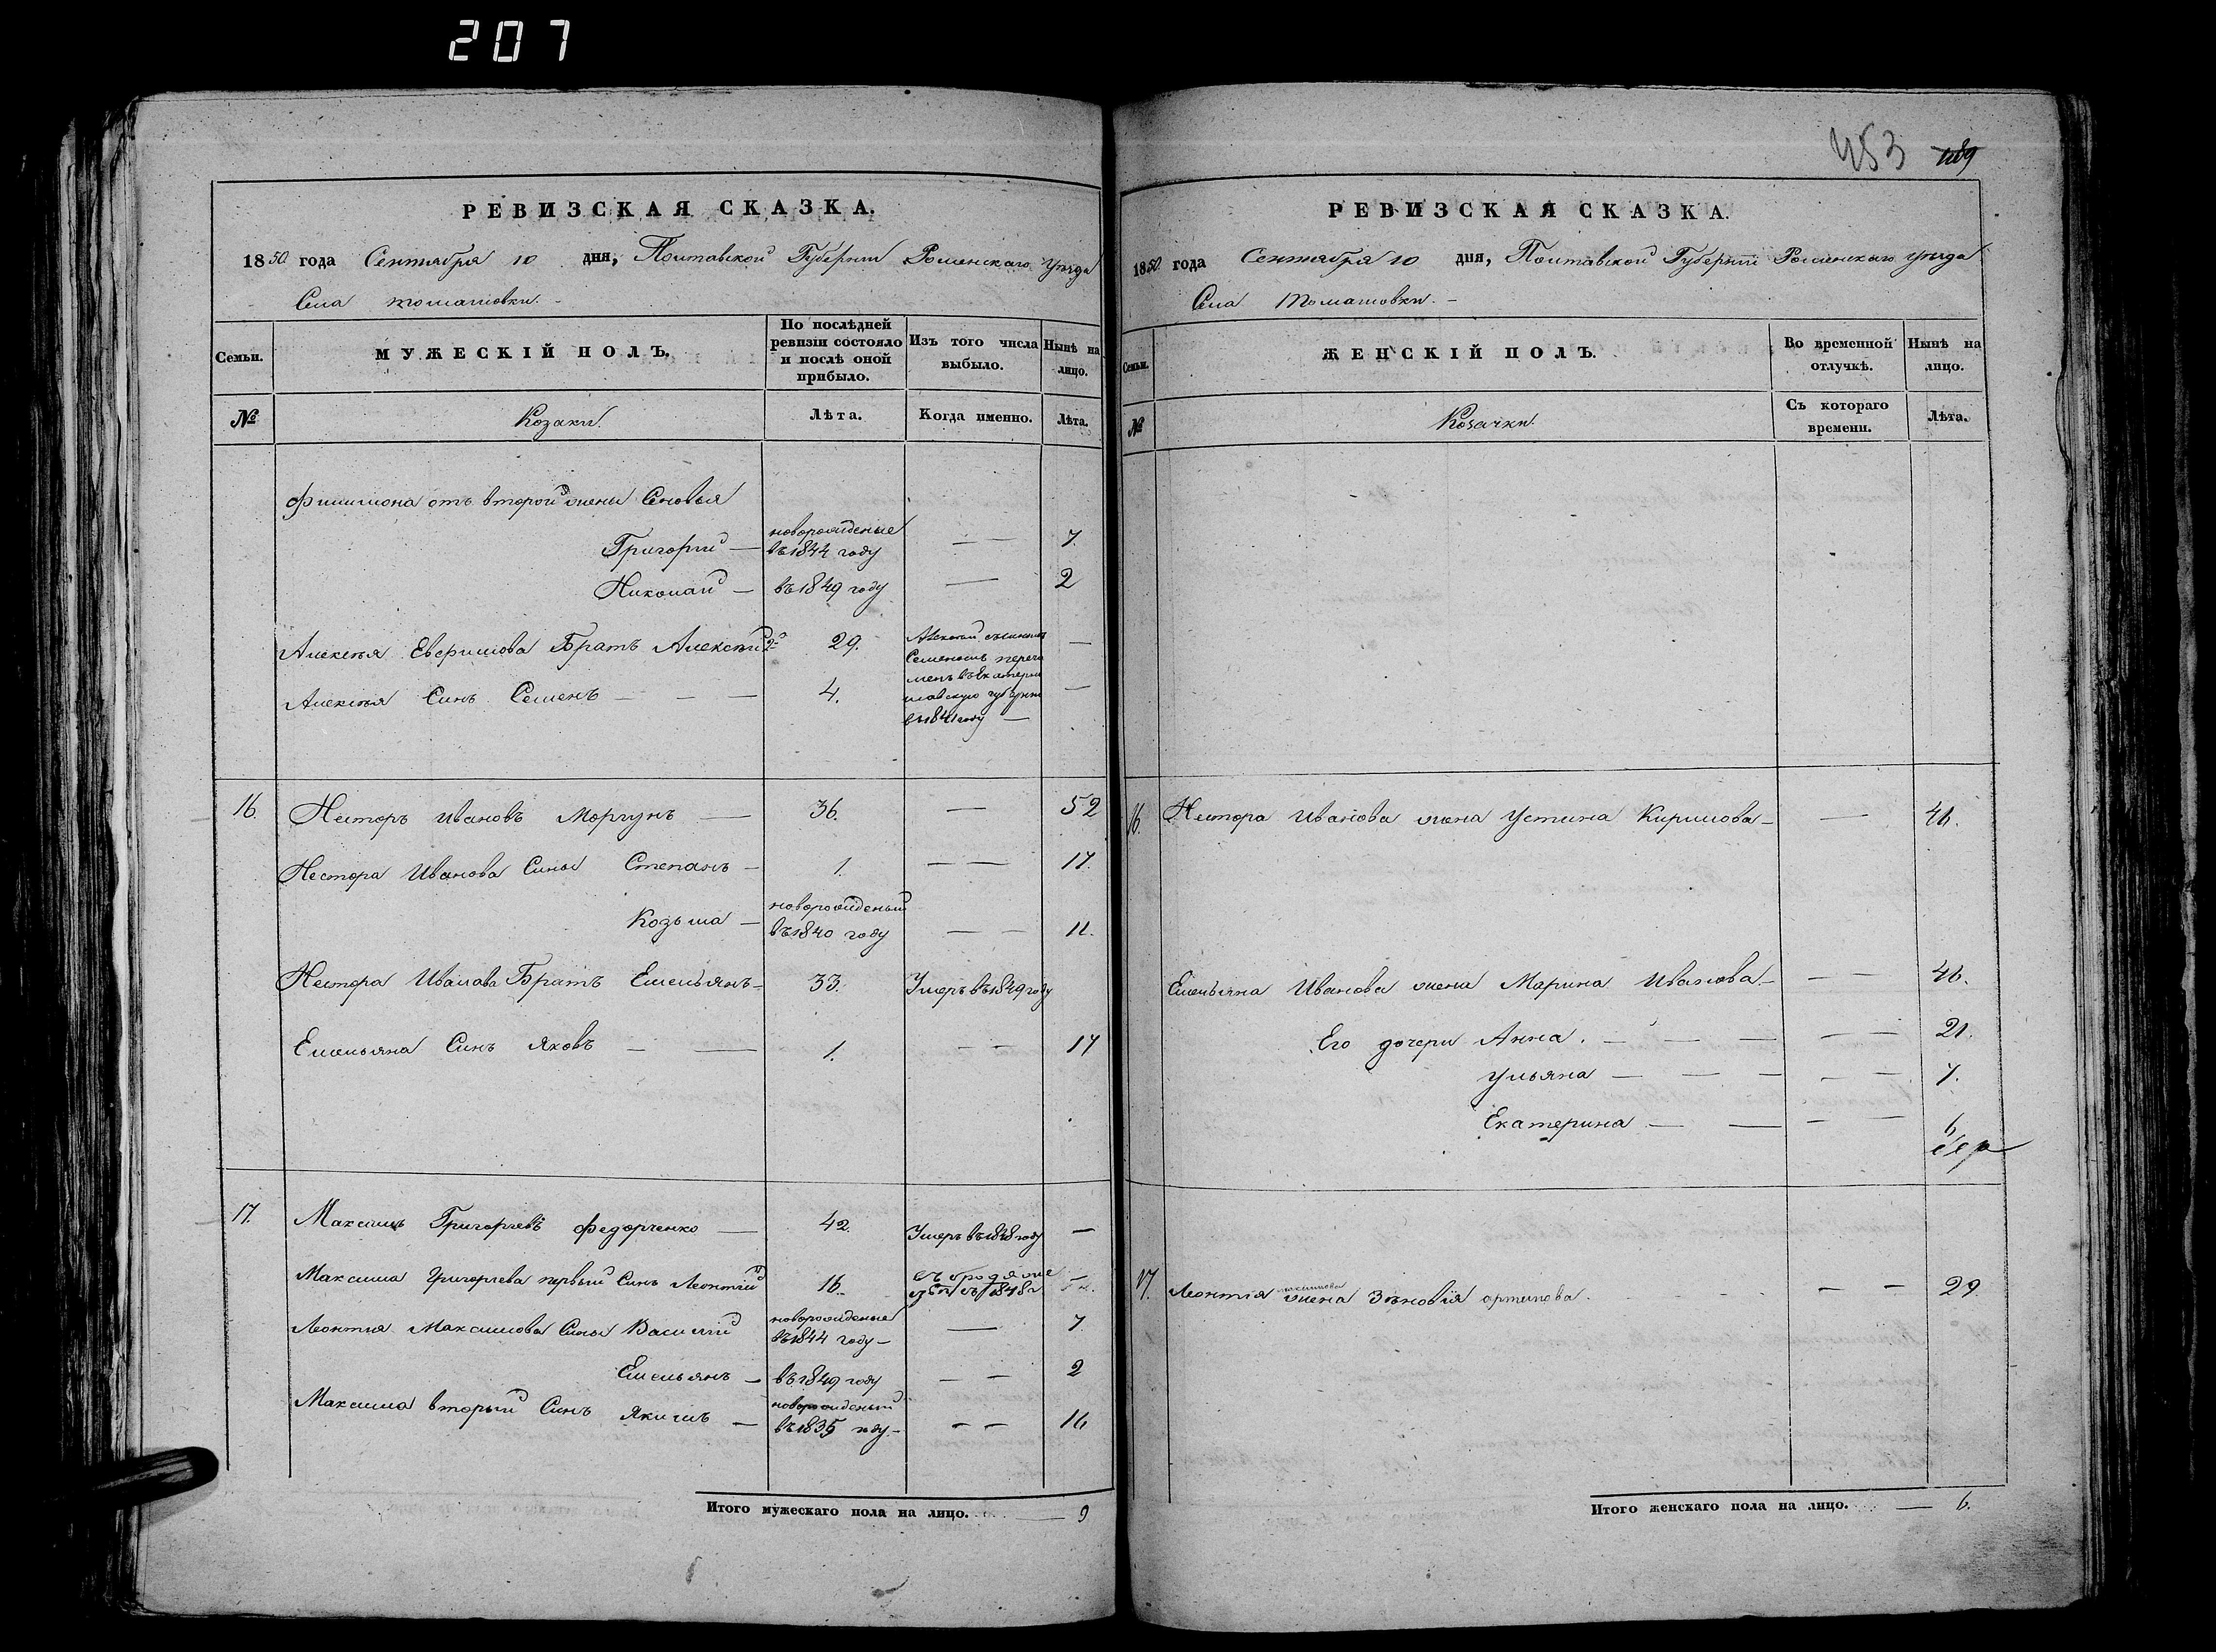 207
453 189
РЕВИЗСКАЯ СКАЗКА.
1850 года Сентября 10 дня, Полтавской Губернии Роменскаго Уезда
Села Томашовки. -
Семьи. МУЖЕСКІЙ ПОЛЪ. По послѣдней ревизіи состояло и послѣ оной прибыло. Изъ того числа выбыло. Нынѣ на лицо.
№ Козаки. Лѣта. Когда именно. Лѣта.
Филимона отъ второй жены Сыновья
Григорий — новорожденые въ 1844 году — — 7.
Николай — въ 1849 году — 2
Алексея Евфимова Братъ Алексей 2й 29. Алексей съ сыномъ Семеномъ —
Алексея Сынъ Семенъ — — — 4. губернию въ 1841 году — —
16. Несторъ Ивановъ Моргунъ — 36. — 52
Нестора Иванова Сыны Степанъ — 1. — — 17.
Козьма — новорожденый въ 1840 году — — 11.
Нестора Иванова Братъ Емельянъ — 33. Умеръ въ 1849 году
Емельяна Сынъ Яковъ — — 1. — — 17
17. Максимъ Григорьевъ Федорченко — 42. Умеръ въ 1848 году —
Максима Григорьева первый Сынъ Леонтий 16.
Леонтия Максимова Сыны Василий новорожденые въ 1844 году — — 7
Емельянъ — въ 1849 году — — 2
Максима вторый Сынъ Якимъ — новорожденый въ 1835 году — — — 16
Итого мужескаго пола на лицо. — 9
РЕВИЗСКАЯ СКАЗКА.
1850 года Сентября 10 дня, Полтавской Губерніи Роменскаго Уезда
Села Томашовки. —
Семьи. ЖЕНСКІЙ ПОЛЪ. Во временной отлучкѣ. Нынѣ на лицо.
№ Козачки. Съ котораго времени. Лѣта.
16. Нестора Иванова жена Устина Кирилова — — 46.
Емельяна Иванова жена Марина Иванова. — — — 46.
Его дочери Анна. — — — — — 21.
Ульяна — — — — — 7.
Екатерина — — — — 6
17. Леонтія Максимова жена Зѣновія Артипова. — — 29.
Итого женскаго пола на лицо. — 6.